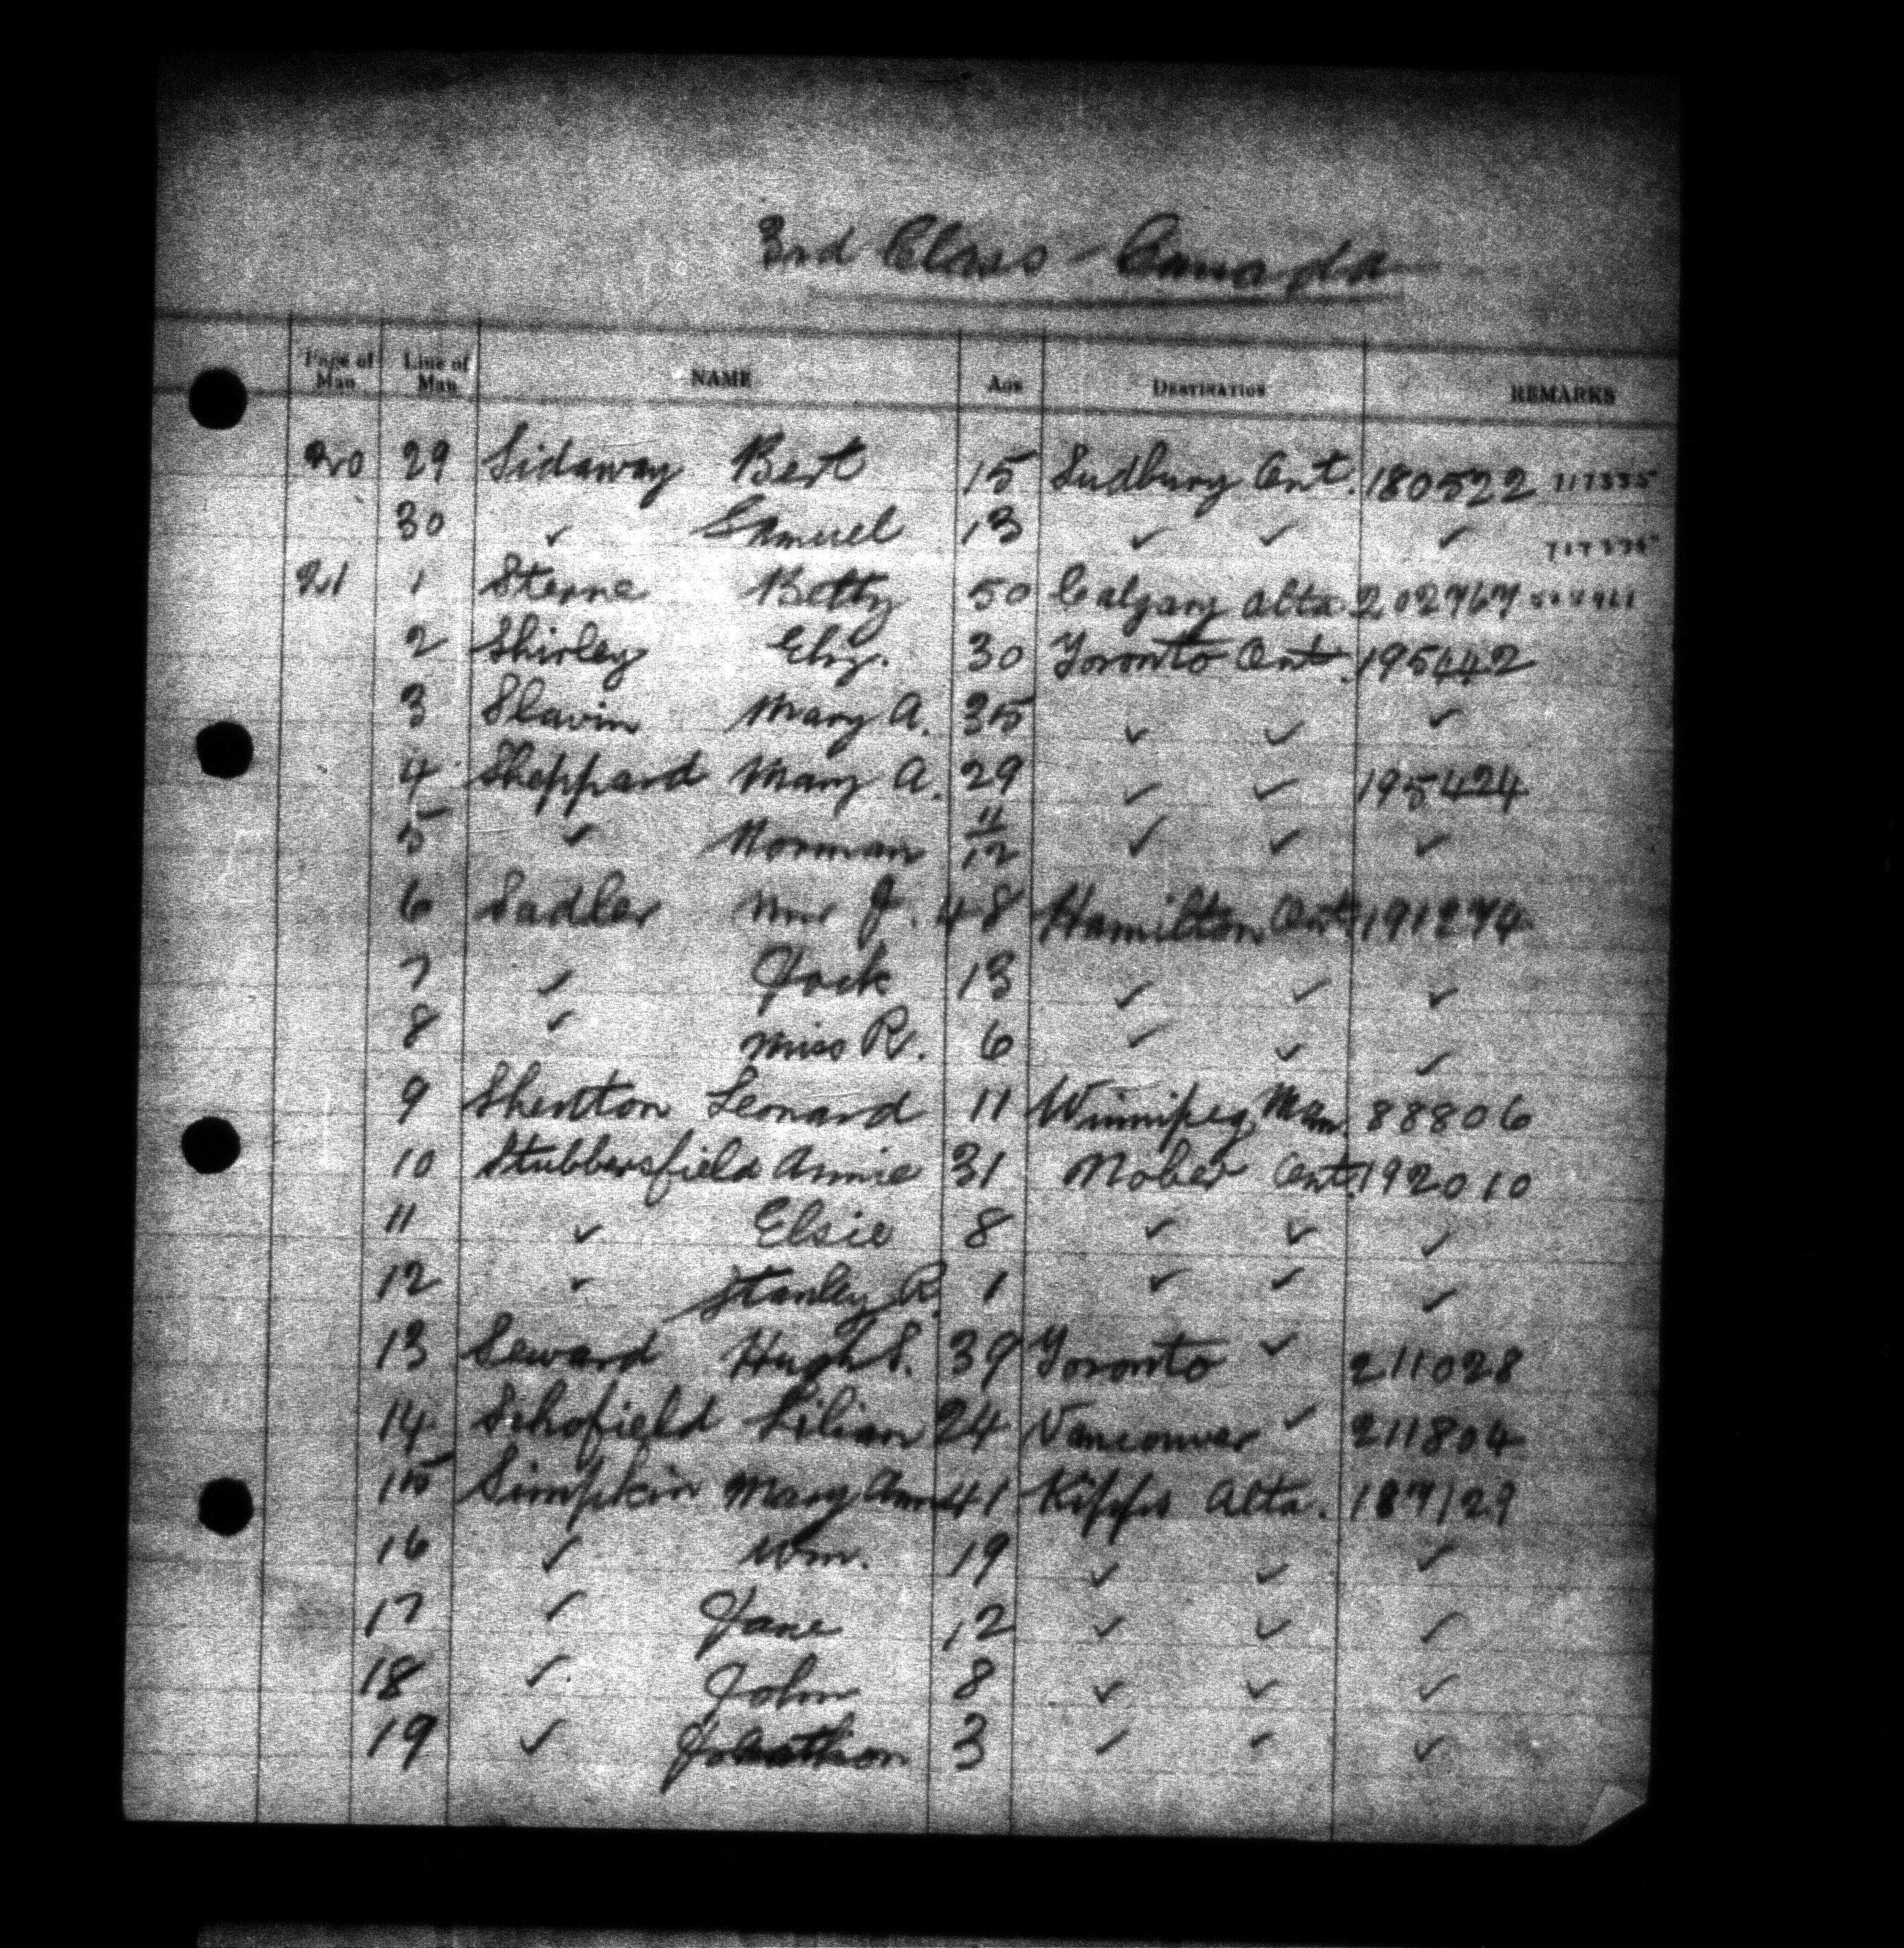 3rd Class - Canada
Page of Man Line of Man NAME AGE DESTINATION REMARKS
20 29 Sidaway Bert 15 Sudbury Ont. 180522 717335
30 ✓ Samuel 13 ✓ ✓ ✓
21 1 Sterne Betty 50 Calgary Alta. 202767
2 Shirley Eliz. 30 Toronto Ont. 195442
3 Slavin Mary A. 35 ✓ ✓ ✓
4 Sheppard Mary A. 29 ✓ ✓ 195424
5 ✓ Norman 11/12 ✓ ✓ ✓
6 Sadler Mrs J. 48 Hamilton Ont 191274
7 ✓ Jack 13 ✓ ✓ ✓
8 ✓ Miss R. 6 ✓ ✓ ✓
9 Shenton Leonard 11 Winnipeg Man. 88806
10 Stubbersfield Annie 31 Mober Ont. 192010
11 ✓ Elsie 8 ✓ ✓ ✓
12 ✓ Stanley R. 1 ✓ ✓ ✓
13 Seward Hugh S. 39 Toronto ✓ 211028
14 Schofield Lilian 24 Vancouver ✓ 211804
15 Simpkin Mary Ann 41 Kipps Alta. 187129
16 ✓ Wm. 19 ✓ ✓ ✓
17 ✓ Jane 12 ✓ ✓ ✓
18 ✓ John 8 ✓ ✓ ✓
19 ✓ Johathon 3 ✓ ✓ ✓